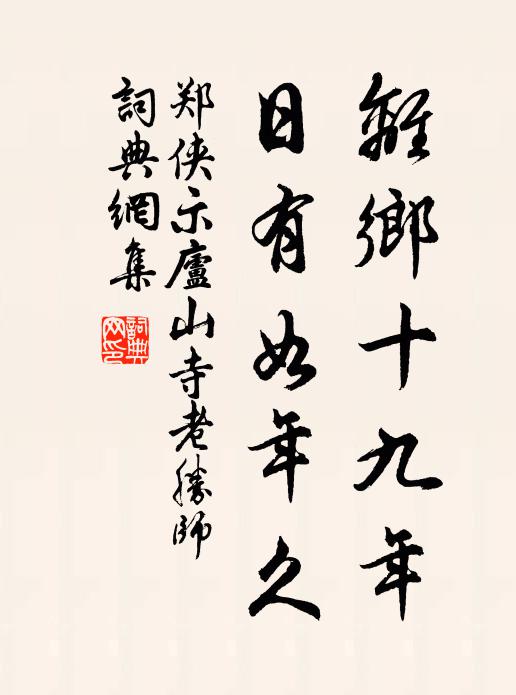 離鄉十九年
日有如年久
郑侠示廬山寺老勝師
詞典網集
詞典网印